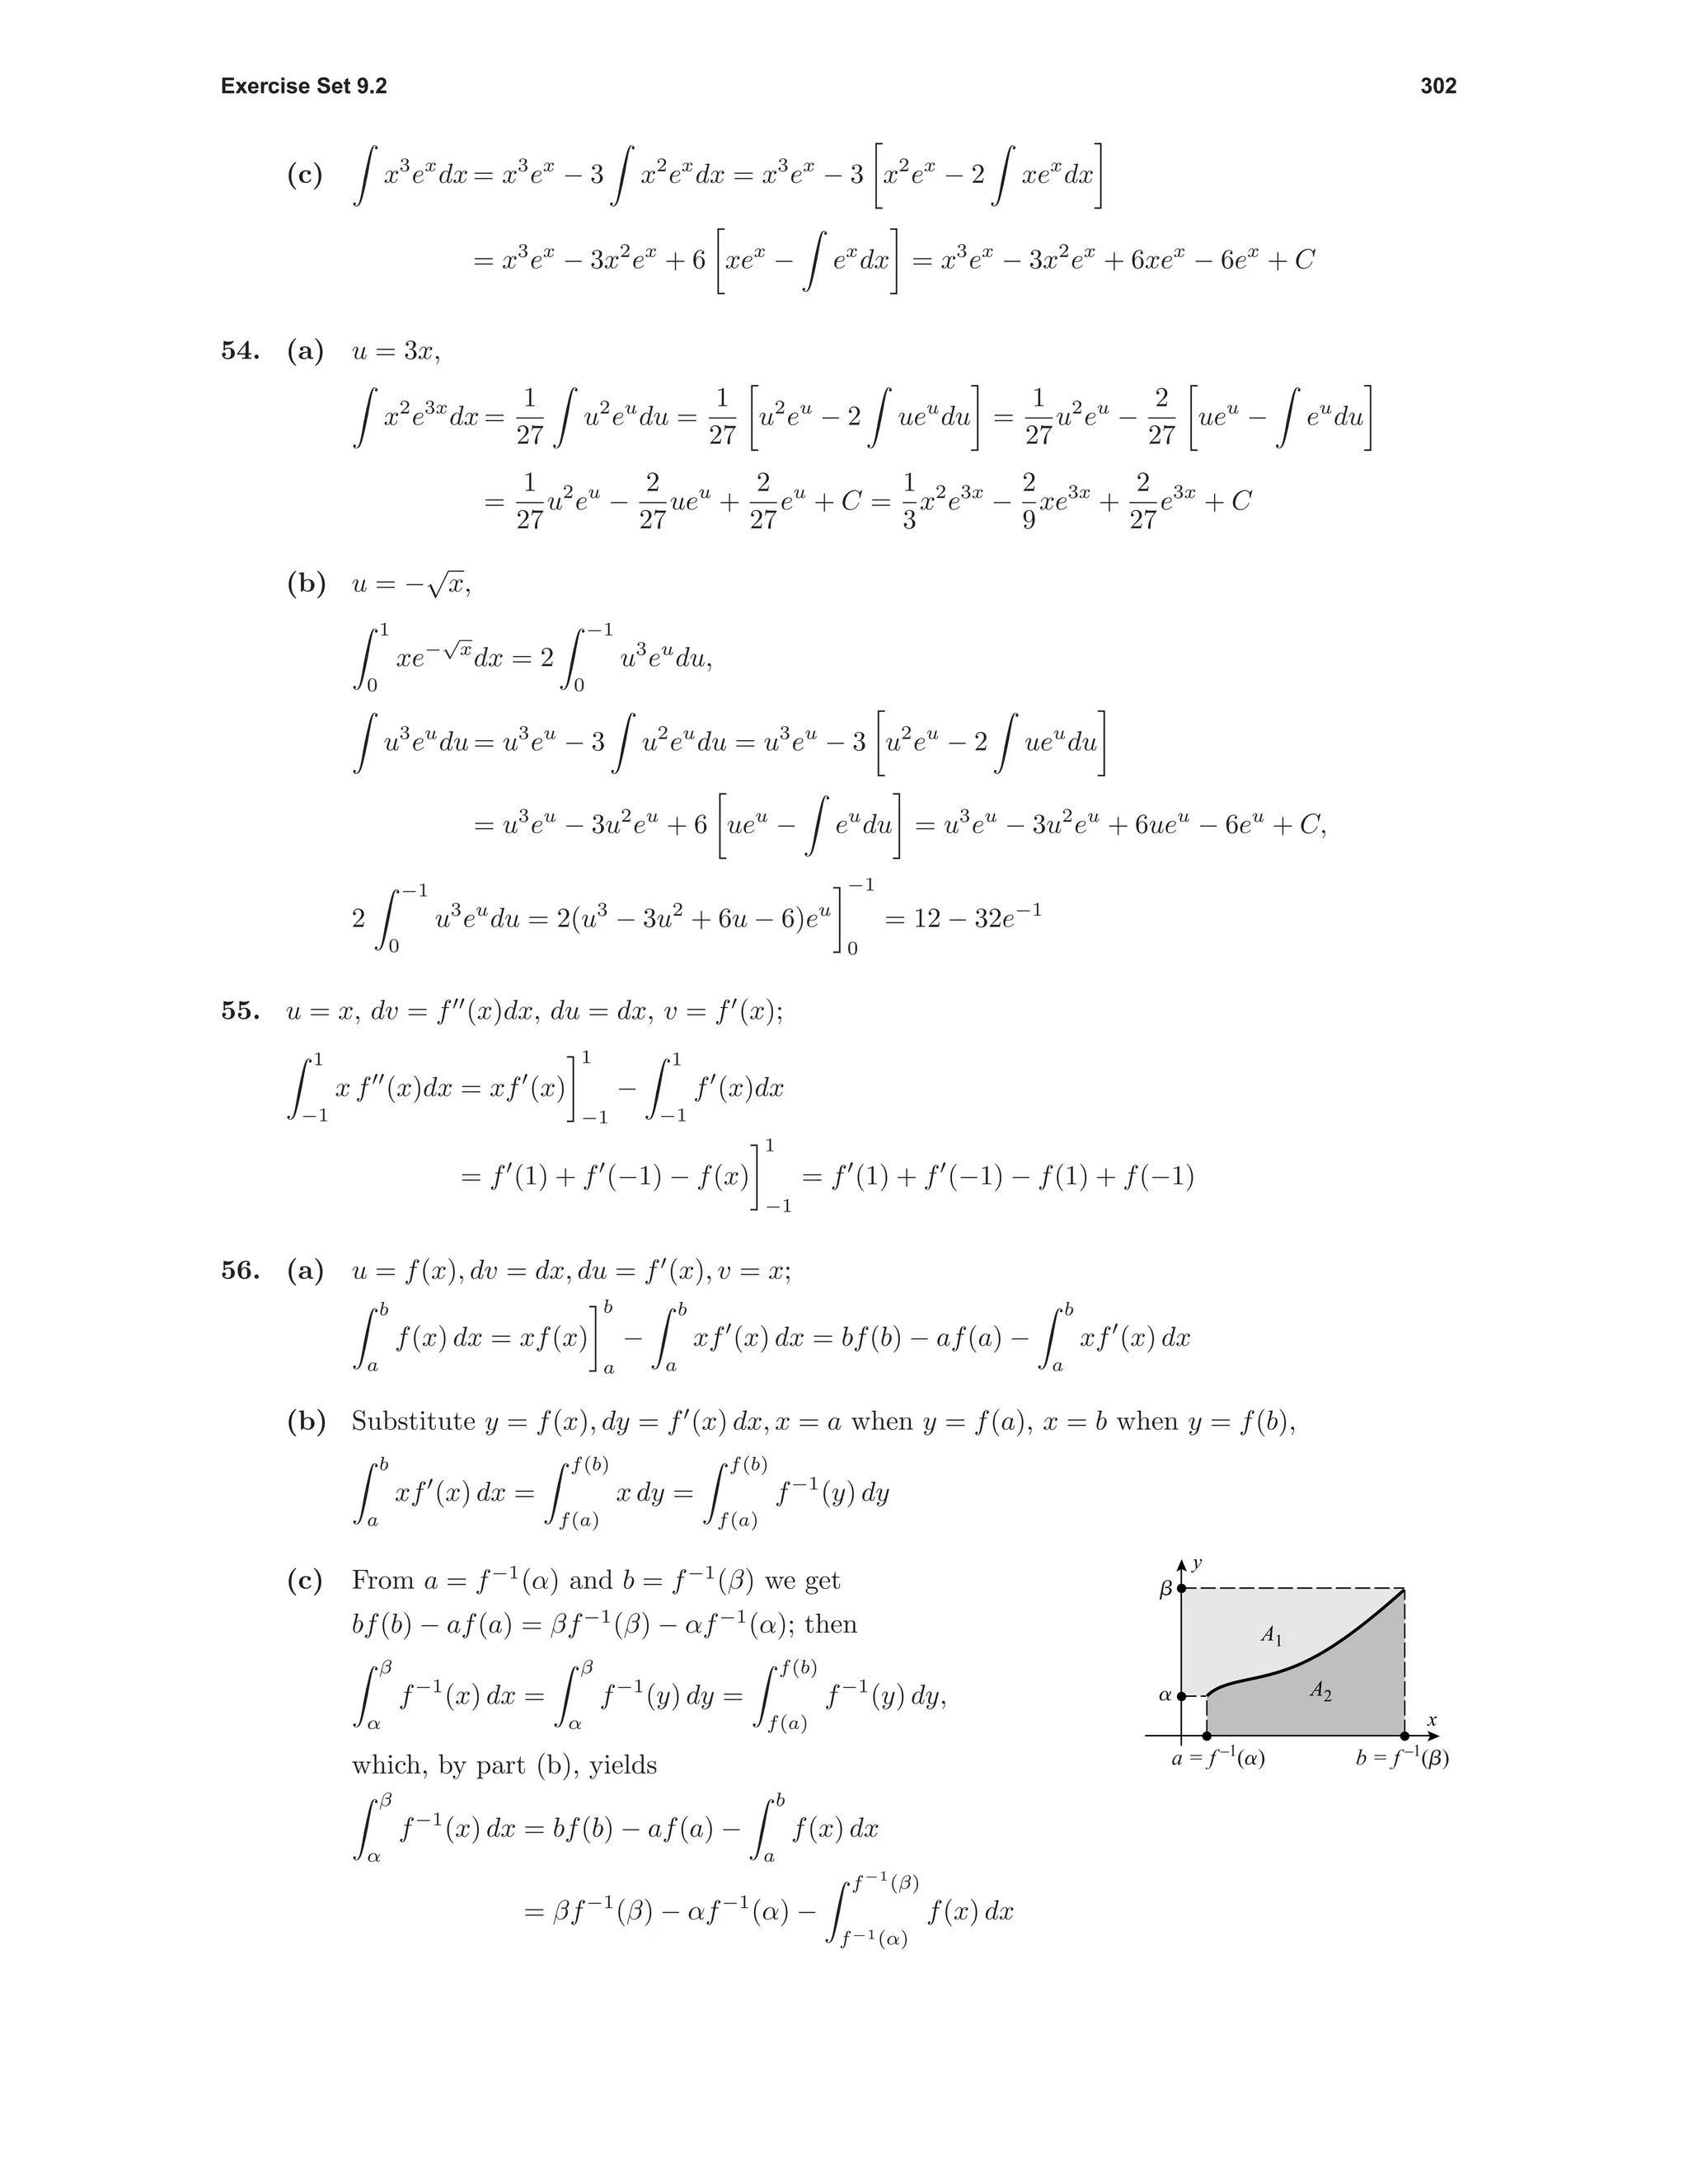 Exercise Set 9.2 302
(c) ∫ x³eˣdx = x³eˣ − 3 ∫ x²eˣdx = x³eˣ − 3 [x²eˣ − 2 ∫ xeˣdx]
= x³eˣ − 3x²eˣ + 6 [xeˣ − ∫ eˣdx] = x³eˣ − 3x²eˣ + 6xeˣ − 6eˣ + C
54. (a) u = 3x,
∫ x²e^{3x}dx = \frac{1}{27} ∫ u²e^u du = \frac{1}{27} [u²e^u − 2 ∫ ue^u du] = \frac{1}{27}u²e^u − \frac{2}{27} [ue^u − ∫ e^u du]
= \frac{1}{27}u²e^u − \frac{2}{27}ue^u + \frac{2}{27}e^u + C = \frac{1}{3}x²e^{3x} − \frac{2}{9}xe^{3x} + \frac{2}{27}e^{3x} + C
(b) u = −√x,
∫_0^1 xe^{−√x}dx = 2 ∫_0^{−1} u³e^u du,
∫ u³e^u du = u³e^u − 3 ∫ u²e^u du = u³e^u − 3 [u²e^u − 2 ∫ ue^u du]
= u³e^u − 3u²e^u + 6 [ue^u − ∫ e^u du] = u³e^u − 3u²e^u + 6ue^u − 6e^u + C,
2 ∫_0^{−1} u³e^u du = 2(u³ − 3u² + 6u − 6)e^u ]_0^{−1} = 12 − 32e^{−1}
55. u = x, dv = f″(x)dx, du = dx, v = f′(x);
∫_{−1}^1 x f″(x)dx = xf′(x) ]_{−1}^1 − ∫_{−1}^1 f′(x)dx
= f′(1) + f′(−1) − f(x) ]_{−1}^1 = f′(1) + f′(−1) − f(1) + f(−1)
56. (a) u = f(x), dv = dx, du = f′(x), v = x;
∫_a^b f(x) dx = xf(x) ]_a^b − ∫_a^b xf′(x) dx = bf(b) − af(a) − ∫_a^b xf′(x) dx
(b) Substitute y = f(x), dy = f′(x) dx, x = a when y = f(a), x = b when y = f(b),
∫_a^b xf′(x) dx = ∫_{f(a)}^{f(b)} x dy = ∫_{f(a)}^{f(b)} f^{−1}(y) dy
(c) From a = f^{−1}(α) and b = f^{−1}(β) we get
bf(b) − af(a) = βf^{−1}(β) − αf^{−1}(α); then
∫_α^β f^{−1}(x) dx = ∫_α^β f^{−1}(y) dy = ∫_{f(a)}^{f(b)} f^{−1}(y) dy,
which, by part (b), yields
∫_α^β f^{−1}(x) dx = bf(b) − af(a) − ∫_a^b f(x) dx
= βf^{−1}(β) − αf^{−1}(α) − ∫_{f^{−1}(α)}^{f^{−1}(β)} f(x) dx
y
β
A₁
α
A₂
x
a = f^{−1}(α) b = f^{−1}(β)